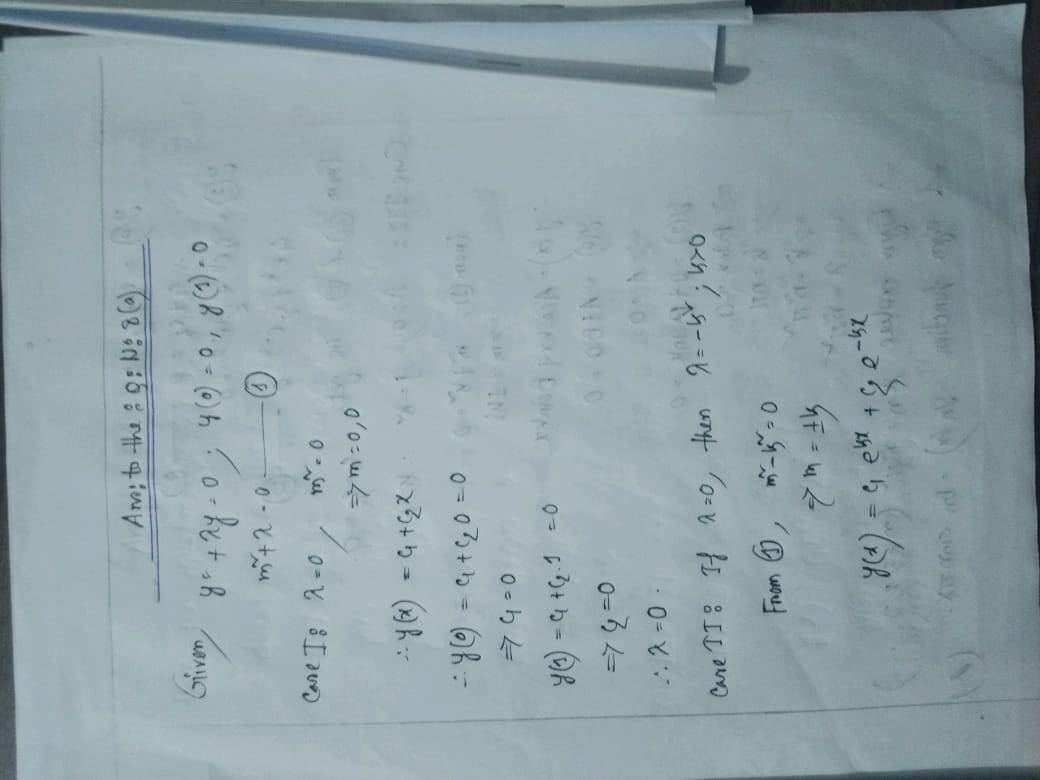 Ans: to the: Q: No: 2(a)
Given, y'' + λy = 0 ; y(0) = 0, y(1) = 0
m² + λ = 0 ——— ①
Case I: λ = 0 , m² = 0
⇒ m = 0, 0
∴ y(x) = c₁ + c₂x
∴ y(0) = c₁ + c₂0 = 0
⇒ c₁ = 0
y(1) = c₁ + c₂.1 = 0
⇒ c₂ = 0
∴ λ = 0 .
Case II: If λ = 0, then λ = -k² ; k > 0
From ①, m² - k² = 0
⇒ m = ±k
y(x) = c₁ e^kx + c₂ e^-kx